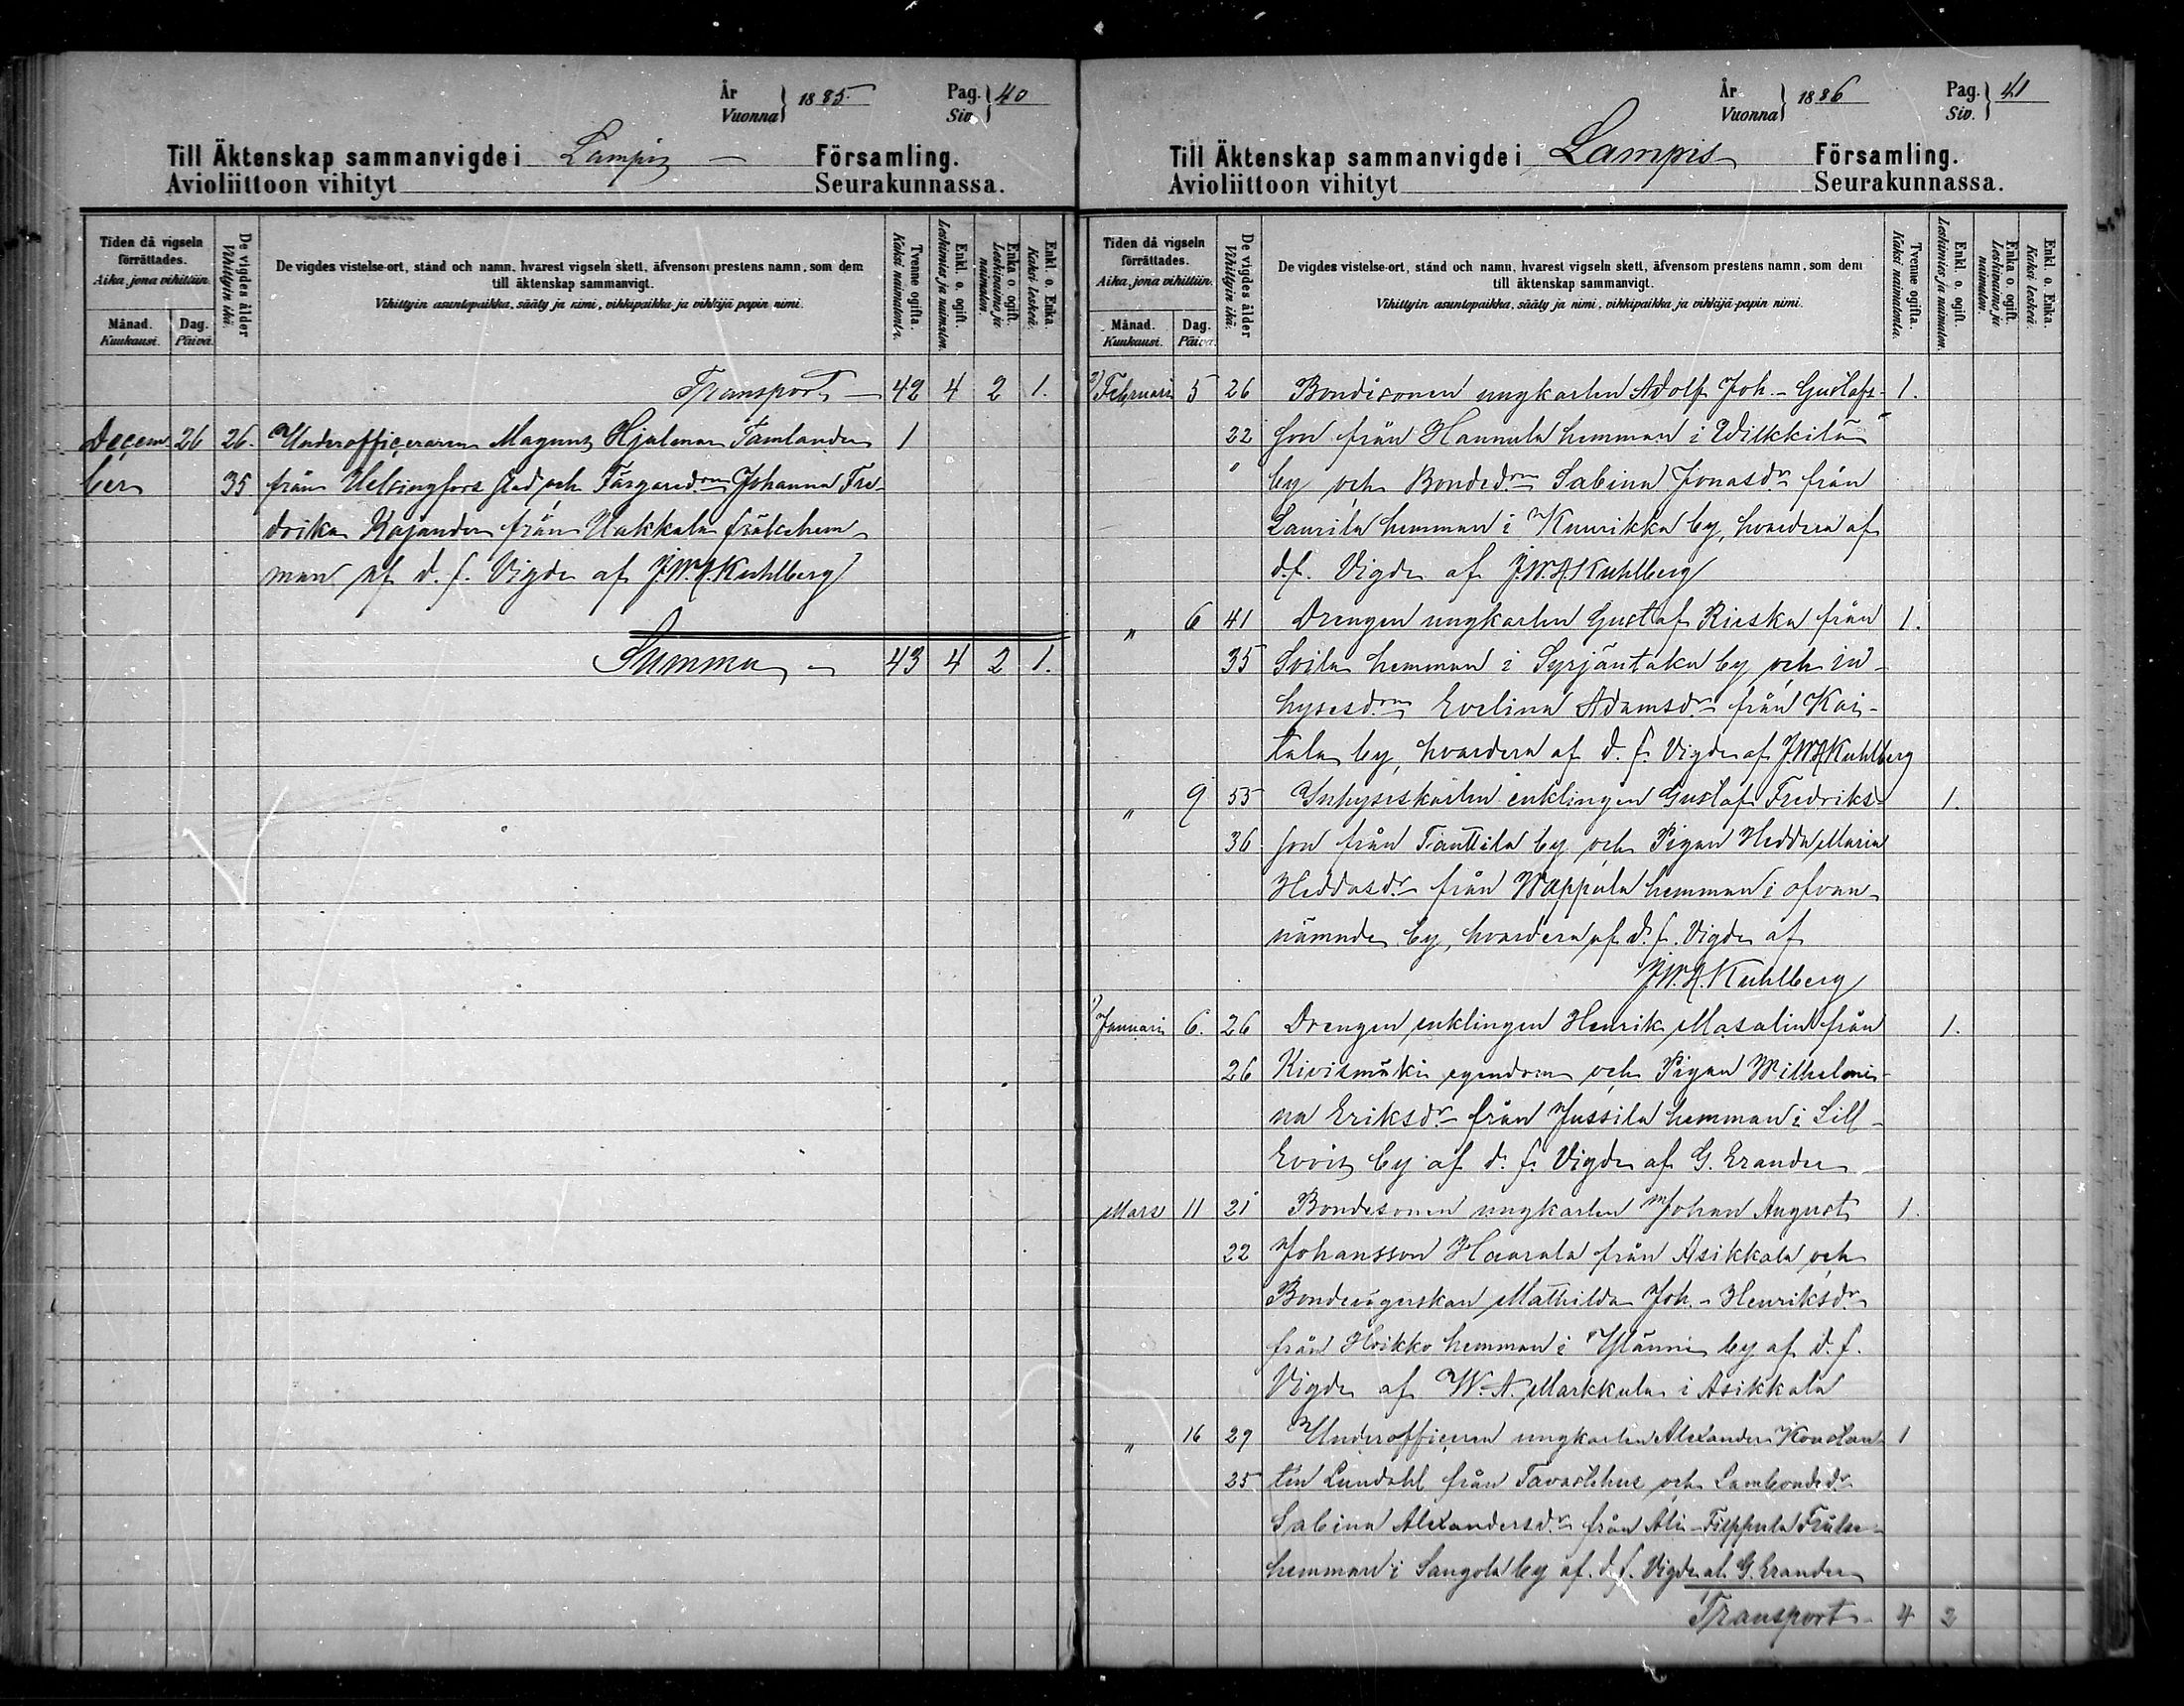 År
Vuonna } 1885
Pag.
Siv. } 40
Till Äktenskap sammanvigde i Lampis Församling.
Avioliittoon vihityt Seurakunnassa.
Tiden då vigseln förrättades.
Aika, jona vihittiin.
Månad.
Kuukausi.
Dag.
Päivä.
De vigdes ålder
Vihittyin ikä.
De vigdes vistelse-ort, stånd och namn, hvarest vigseln skett, äfvensom prestens namn, som dem
till äktenskap sammanvigt.
Vihittyin asuntopaikka, sääty ja nimi, vihkipaikka ja vihkijä papin nimi.
Tvenne ogifta.
Kaksi naimatonta.
Enkl. o. ogift.
Leskimies ja naimaton.
Enka o ogift.
Leskivaimo ja naimaton.
Enkl. o. Enka.
Kaksi leskeä.
Transport 42 4 2 1.
Decem 26 26. Underofficeraren Magnus Hjalmar Tamlander 1
ber 35 från Helsingfors stad och Färgaredrn Johanna Fre-
drika Kajander från Hakkala frälsehem-
man af d. f. Vigde af J.W.A. Kuhlberg
Summa 43 4 2 1.
År
Vuonna } 1886
Pag.
Siv. } 41
Till Äktenskap sammanvigde i Lampis Församling.
Avioliittoon vihityt Seurakunnassa.
Tiden då vigseln förrättades.
Aika, jona vihittiin.
Månad.
Kuukausi.
Dag.
Päivä.
De vigdes ålder
Vihittyin ikä.
De vigdes vistelse-ort, stånd och namn, hvarest vigseln skett, äfvensom prestens namn, som dem
till äktenskap sammanvigt.
Vihittyin asuntopaikka, sääty ja nimi, vihkipaikka ja vihkijä-papin nimi.
Tvenne ogifta.
Kaksi naimatonta.
Enkl. o. ogift.
Leskimies ja naimaton.
Enka o. ogift.
Leskivaimo ja naimaton.
Enkl. o. Enka.
Kaksi leskeä.
2) Februari 5 26 Bondesonen ungkarlen Adolf Joh.-Gustafs- 1.
22 son från Hannula hemman i Wilkkilä
by och Bondedrn Sabina Jonasdr från
Laurila hemman i Kuurikka by, hvardera af
d.f. Vigde af J.W.A Kuhlberg
" 6 41 Drengen ungkarlen Gustaf Rieska från 1.
35 Soila hemman i Syrjäntaka by och in-
hysesdrn Evelina Adamsdr från Kai-
tala by, hvardera af d. f. Vigde af JWA Kuhlberg
" 9 55 Inhyseskarlen enklingen Gustaf Fredriks- 1.
36 son från Tanttila by och Pigan Hedda Maria
Heddasdr från Wappula hemman i ofvan-
nämnde by, hvardera af d. f. Vigde af
J.W.A. Kuhlberg
1) Januari 6. 26 Drengen enklingen Henrik Masalin från 1.
26 Kivismäki egendom och Pigan Wilhelmi-
na Eriksdr från Jussila hemman i Lill-
Evois by af d. f. Vigde af G. Erander
Mars 11 21 Bondesonen ungkarlen Johan August 1.
22 Johansson Haarala från Asikkala och
Bondeegerskan Mathilda Joh.-Henriksdr
från Hoikko hemman i Ylänne by af d. f.
Vigde af W. A. Markkula i Asikkala
" 16 29 Underofficeren ungkarlen Alexander Konstan- 1
25 tin Lundahl från Tavastehus och Lambondedr
Sabina Alexandersdr från Ali-Filppula Frälse-
hemman i Sangola by af. d. f. Vigde af G. Erander
Transport 4 2